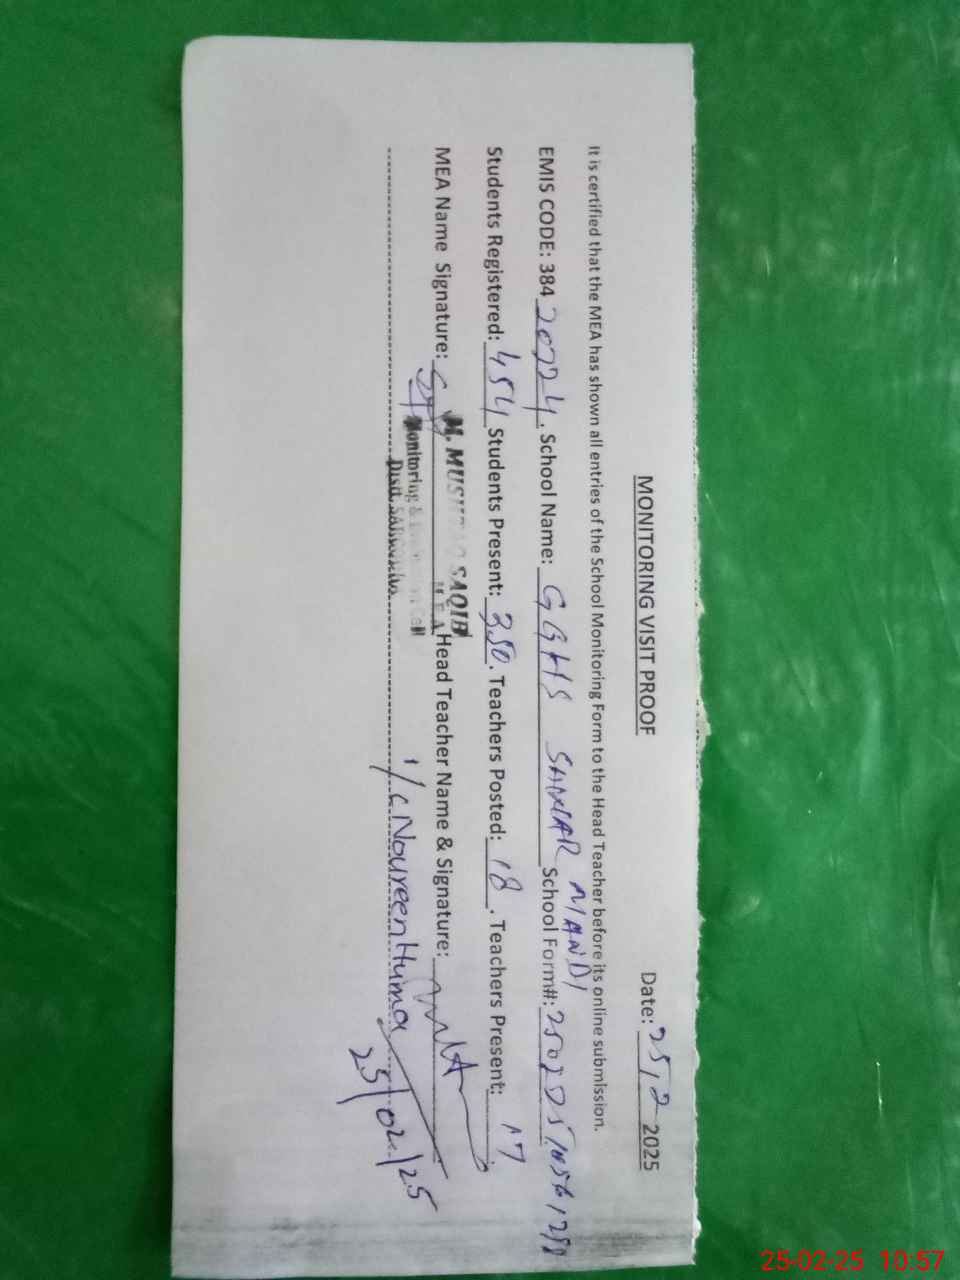 MONITORING VISIT PROOF
Date: 25,2 2025
It is certified that the MEA has shown all entries of the School Monitoring Form to the Head Teacher before its online submission.
EMIS CODE: 384 20224. School Name: GGHS MANDI School Form#:
Students Registered: 454 Students Present: 350. Teachers Posted: 18. Teachers Present: 17
MEA Name Signature: Head Teacher Name & Signature:
M. SAQIB
M E A
Monitoring &
Distt.
I/c Noureen Huma
25/02/25
25-02-25 10:57